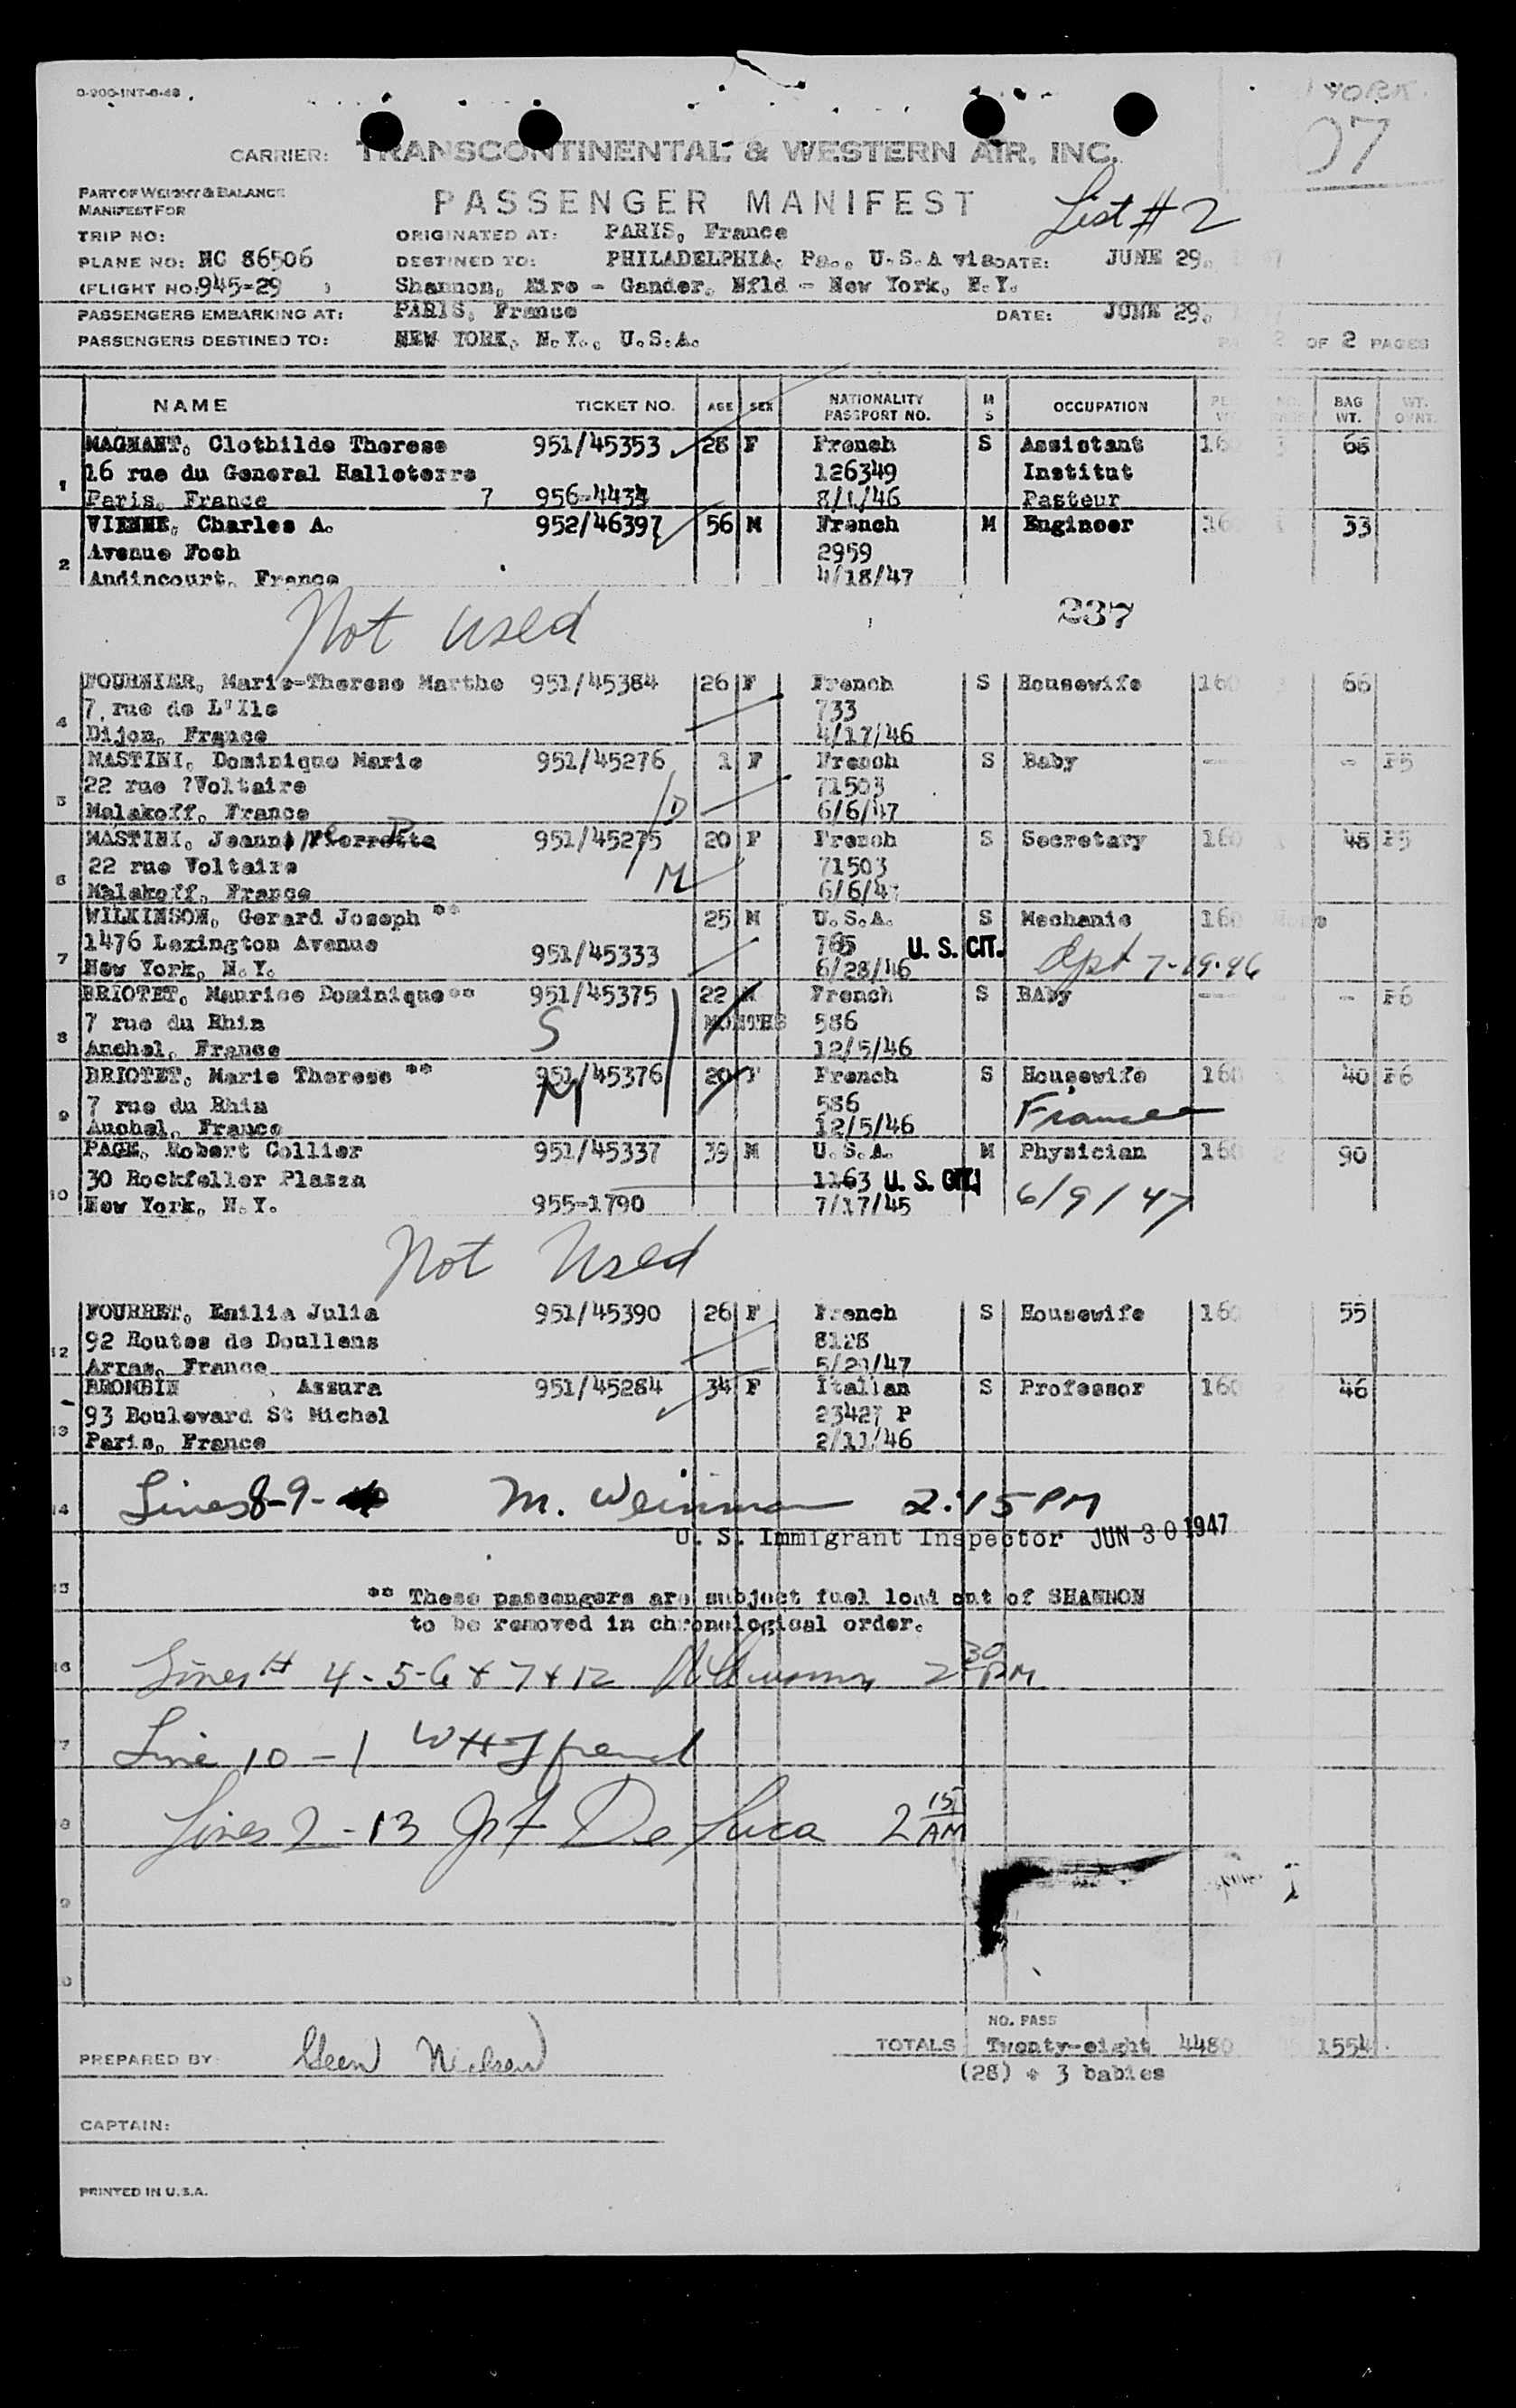 0-200-INT-6-48
YORK
07
CARRIER: TRANSCONTINENTAL & WESTERN AIR, INC.
PART OF WEIGHT & BALANCE
MANIFEST FOR
PASSENGER MANIFEST
List # 2
TRIP NO: ORIGINATED AT: PARIS, France
PLANE NO: NC 86506 DESTINED TO: PHILADELPHIA, Pa., U.S.A via DATE: JUNE 29,
(FLIGHT NO: 945-29 ) Shannon, Eire - Gander, Nfld - New York, N.Y.
PASSENGERS EMBARKING AT: PARIS, France DATE: JUNE 29,
PASSENGERS DESTINED TO: NEW YORK, N.Y., U.S.A. 2 OF 2 PAGES
NAME TICKET NO. AGE SEX NATIONALITY PASSPORT NO. M S OCCUPATION BAG WT. WT. OVNT.
MAGNANT, Clothilde Therese 951/45353 28 F French S Assistant 160 66
16 rue du General Halleterre 126349 Institut
1 Paris, France 7 956-4434 8/1/46 Pasteur
VIENNE, Charles A. 952/46397 56 M French M Engineer 160 33
Avenue Foch 2959
2 Andincourt, France 4/18/47
Not used 237
FOURNIER, Marie-Therese Marthe 951/45384 26 F French S Housewife 160 66
7, rue de L'Ile 733
4 Dijon, France 4/17/46
MASTINI, Dominique Marie 951/45276 1 F French S Baby --- - F5
22 rue ?Voltaire 71503
5 Malakoff, France D 6/6/47
MASTINI, Jeanne Pierrette 951/45275 20 F French S Secretary 160 45 F5
22 rue Voltaire 71503
6 Malakoff, France M 6/6/47
WILKINSON, Gerard Joseph ** 25 M U.S.A. S Mechanic 160
1476 Lexington Avenue 951/45333 765 U. S. CIT.
7 New York, N.Y. 6/28/46 Dpt 7-19-46
BRIOTET, Maurice Dominique** 951/45375 22 M French S BAby --- - F6
7 rue du Rhin S MONTHS 586
8 Anchel, France 12/5/46
BRIOTET, Marie Therese ** 951/45376 20 F French S Housewife 160 40 F6
7 rue du Rhin M 586 France
9 Auchel, France 12/5/46
PAGE, Robert Collier 951/45337 39 M U.S.A. M Physician 160 90
30 Rockfeller Plazza 1163 U. S. CIT.
10 New York, N.Y. 955-1790 7/17/45 6/9/47
Not Used
FOURRET, Emilia Julia 951/45390 26 F French S Housewife 160 55
92 Routes de Doullens 8128
12 Arras, France 5/20/47
BROMBIN , Azzura 951/45284 34 F Italian S Professor 160 46
93 Boulevard St Michel 23427 P
13 Paris, France 2/11/46
14 Lines 8-9- M. Weinman 2:15 PM
U. S. Immigrant Inspector JUN 30 1947
15 ** These passengers are subject fuel load out of SHANNON
to be removed in chronological order.
16 Lines # 4-5-6 + 7 + 12 2 30 PM
7 Line 10 - 1
8 Lines 2 - 13 De Luca 2 15 AM
9
0
NO. PASS
PREPARED BY: Nielsen TOTALS Twenty-eight 4480 1554
(28) + 3 babies
CAPTAIN:
PRINTED IN U.S.A.